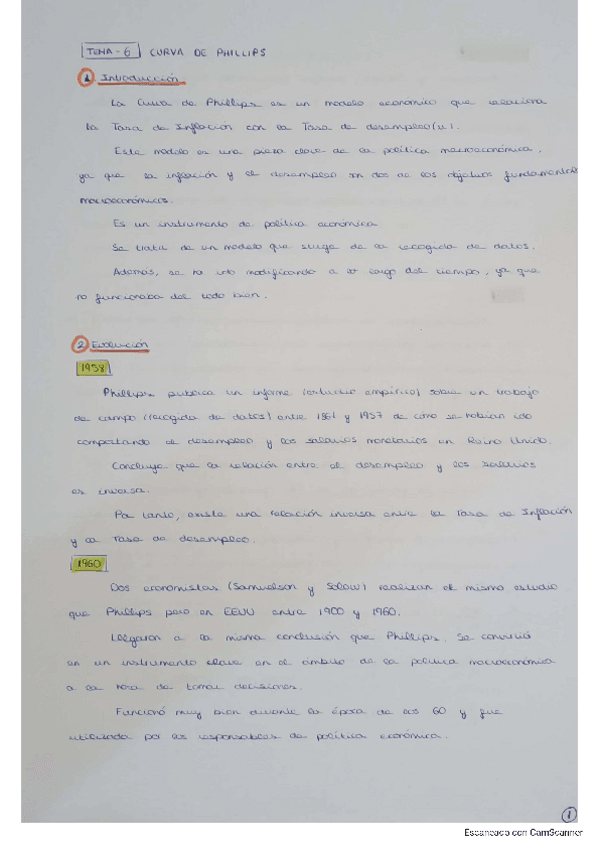 TEMA - 6 CURVA DE PHILLIPS
1 Introducción
La Curva de Phillips es un modelo económico que relaciona
la Tasa de Inflación con la Tasa de desempleo (u).
Este modelo es una pieza clave de la política macroeconómica,
ya que la inflación y el desempleo son dos de los objetivos fundamentales
macroeconómicos.
Es un instrumento de política económica
Se trata de un modelo que surge de la recogida de datos.
Además, se ha ido modificando a lo largo del tiempo, ya que
no funcionaba del todo bien.
2 Evolución
1958
Phillips publica un informe (estudio empírico) sobre un trabajo
de campo (recogida de datos) entre 1861 y 1957 de cómo se habían ido
comportando el desempleo y los salarios monetarios en Reino Unido.
Concluye que la relación entre el desempleo y los salarios
es inversa.
Por tanto, existe una relación inversa entre la Tasa de Inflación
y la Tasa de desempleo.
1960
Dos economistas (Samuelson y Solow) realizan el mismo estudio
que Phillips pero en EEUU entre 1900 y 1960.
Llegaron a la misma conclusión que Phillips. Se convirtió
en un instrumento clave en el ámbito de la política macroeconómica
a la hora de tomar decisiones.
Funcionó muy bien durante la época de los 60 y fue
utilizada por los responsables de política económica.
1
Escaneado con CamScanner